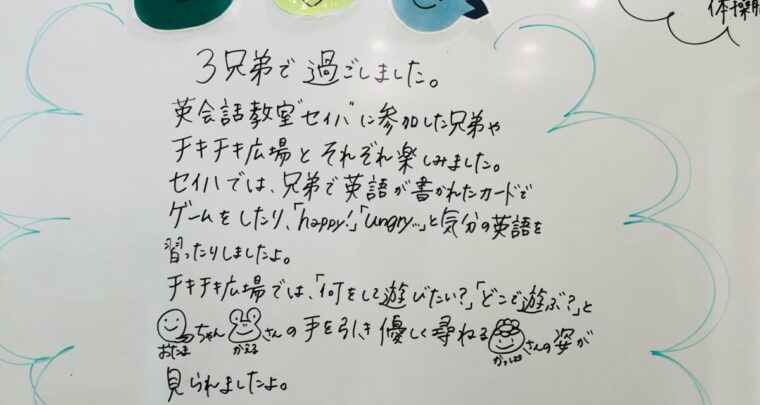 体操服
3兄弟で過ごしました。
英会話教室"セイハ"に参加した兄弟や
チキチキ広場とそれぞれ楽しみました。
セイハでは、兄弟で英語が書かれたカードで
ゲームをしたり、「happy!」「ungry…」と気分の英語を
習ったりしましたよ。
チキチキ広場では、「何をして遊びたい?」「どこで遊ぶ?」と
おたまちゃんかえるさんの手を引き優しく尋ねるかっぱさんの姿が
見られましたよ。